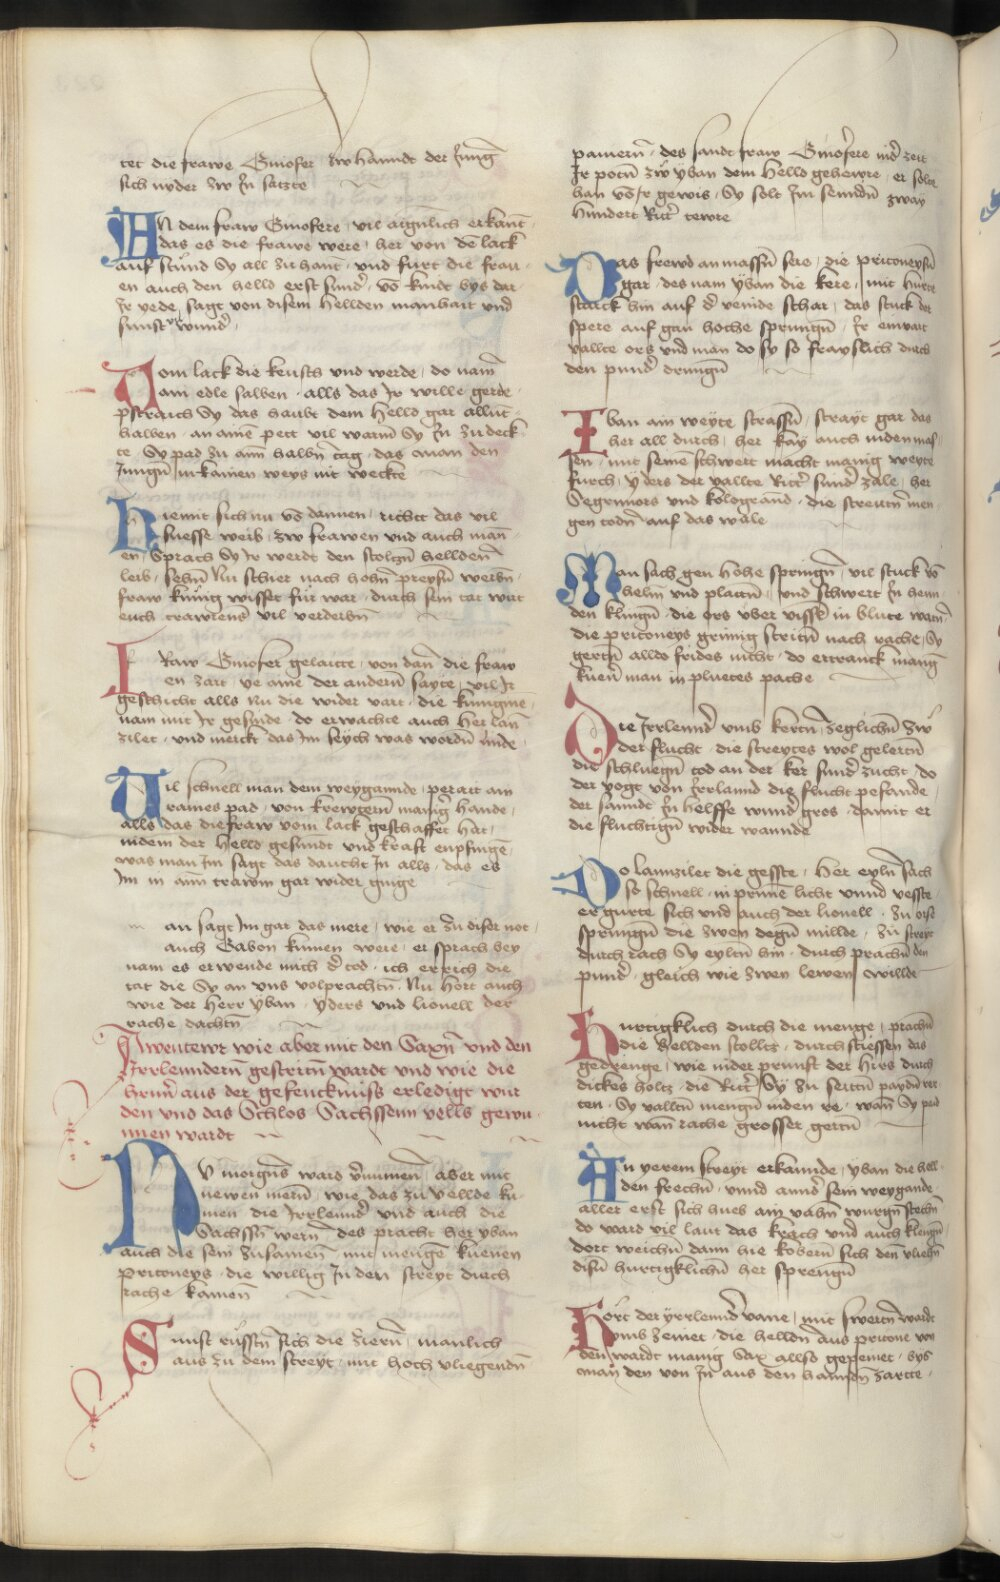 tet die frawe Ginofer zw hanndt der Jung̃
sich nyder zw Jn satzte
AN dem fraw Ginofere vil aigñlich erkant
das es die frawe were her von dē lack
auf stund Sy all zu hant vnd furt die frau
en auch den helld erst sund̾ vō kindt bys dar
Jr rede sagt von disem hellden manhait vnd
sunst wund̾
Vom lack die keusch vnd werde do nam
ain edle salben alls das Jr wille gerte
pstraich Sy das haubt dem helld gar allent
halben an ainē pett vil warm Sy Jn zu deck
te Sy pad zu aim halbñ tag das man den
Jungñ in kainen weys nit weckte
Hiemit sich nu vō dannen richtt das vil
suesse weib zw frawen vnd auch man
en Sprach Sy Jr werdt den stoltzñ helldenn
leib sehñ Nu schier nach hohñ preysñ werbñ
fraw kunig wisset fur war durch sein tat wirt
euch trawrens vil verderbñ
Fraw Ginofer gelaitte von dañ die fraw
en zart ye aine der andern sayte vil Jr
geschicht alls Nu die wider vart die kunigine
nam mit Jr gesinde do erwachte auch her lan
zilet vnd merckt das Jm seych was wordñ linde
Vil schnell man dem weygannde perait ain
raines pad von krewtern manig̾ hande
alls das die fraw vom lack geschaffet hat
indem der Helld gesundt vnd kraft enpfinge
was man Jm sagt das daucht Jn alls das es
Jm in aim trawm gar wider ginge
m an sagt Jm gar das mere wie er zu diser not
auch Gabon kumen were er sprach hey
nam es erwende mich d̾ tod ich errich die
tat die Sy an vns volprachtñ Nu hort auch
wie der Herr yban yders vnd lionell der
rache dachtñ
Awentewr wie aber mit den Saxñ vnd den
Jrrlenndern gestritñ wardt vnd wie die
hernñ aus der gefencknuss erledigt wur
den vnd das Schlos Sachssenn vells gewu
nnen wardt
NV morgñs ward v̾numen aber mit
newen merñ wie das zu vellde ku
men die Jrrlennd̾ vnd auch die
Sachssñ wern des pracht her yban
auch die sein zusamen mit mengē kuenen
Pritoneys die willig Jn den streyt durch
rache kamen
Sunst russtñ sich die ziern manlich
aus zu dem streyt mit hoch vliegendñ
paniernn des sandt fraw Ginofere ind̾ zeit
Jr potñ zw yban dem Helld gehewre er solt
han vō Jr gewis Sy solt Jm sendñ zway
hundert Ritt̾ tewre
Das frewd an massñ sere die pritoneysñ
gar des nam yban die kere mit hurte
starck hin auf d̾ veinde schar das stuck der
spere auf gan hoche sprungñ Jr enwart
vallte ors vnd man do sy so frayslich durch
den pund̾ drungñ
Yban ain weyte strassñ strayt gar das
her all durch her kay auch inden mas
sen mit seinē schwert macht manig weyte
furch yders der vallte Ritt̾ sund̾ zale her
Segrimors vnd kologrand die streutñ men
gen todñ auf das wale
Man sach gen hohe springñ vil stuck vō
helm vnd plattñ vnd schwert Jn henn
den klingñ die ors vber visslt in blute watñ
die pritoneys grimig stritñ nach rache Sy
gertñ alldo frides nicht do ertranck manig
kuen man in pluetes pache
Die Jrrlennd̾ vmb kertñ zeglichñ zw
der flucht die streytes wol gelertñ
die schluegñ tod an der ker sund̾ zucht do
der vogt von Jrrlannd die flucht pefande
der sanndt Jn helffe wund̾ gros damit er
die fluchtigñ wider wannde
Do lannzilet die gesste her eylñ sach
so schnell in prinne licht vnnd vesste
er gurte sich vnd auch der lionell zu orse
sprungñ die zwen degñ millde zu streyt
durch rach Sy eyltñ hin durch prachñ den
pund̾ gleich wie zwen lewen willde
Hurtigklich durch die menge prachñ
die hellden stolltz durch stiessen das
gedrenge wie inder prunft der Hirs durch
dickes holtz die Ritt̾ Sy zu seitñ paydñ ver
ten Sy valltñ mengñ inden re wañ Sy paid
nicht wañ rache grosser gertñ
An yerem streyt erkannde yban die hell
den frechñ vnnd annd̾ sein weygande
aller erst sich hueb ain vahñ wurgñ stechñ
do ward vil laut das krach vnd auch klengñ
dort weichñ dann hie koberñ sich den vliehñ
disñ hurtigklichñ her sprengñ
Hort der yrrlennd̾ vane mit swertñ wardt
vmb zemet die helldñ aus pritone von
den wardt manig Sax allso gezemet bys
man den von Jn aus den hanndñ zartte